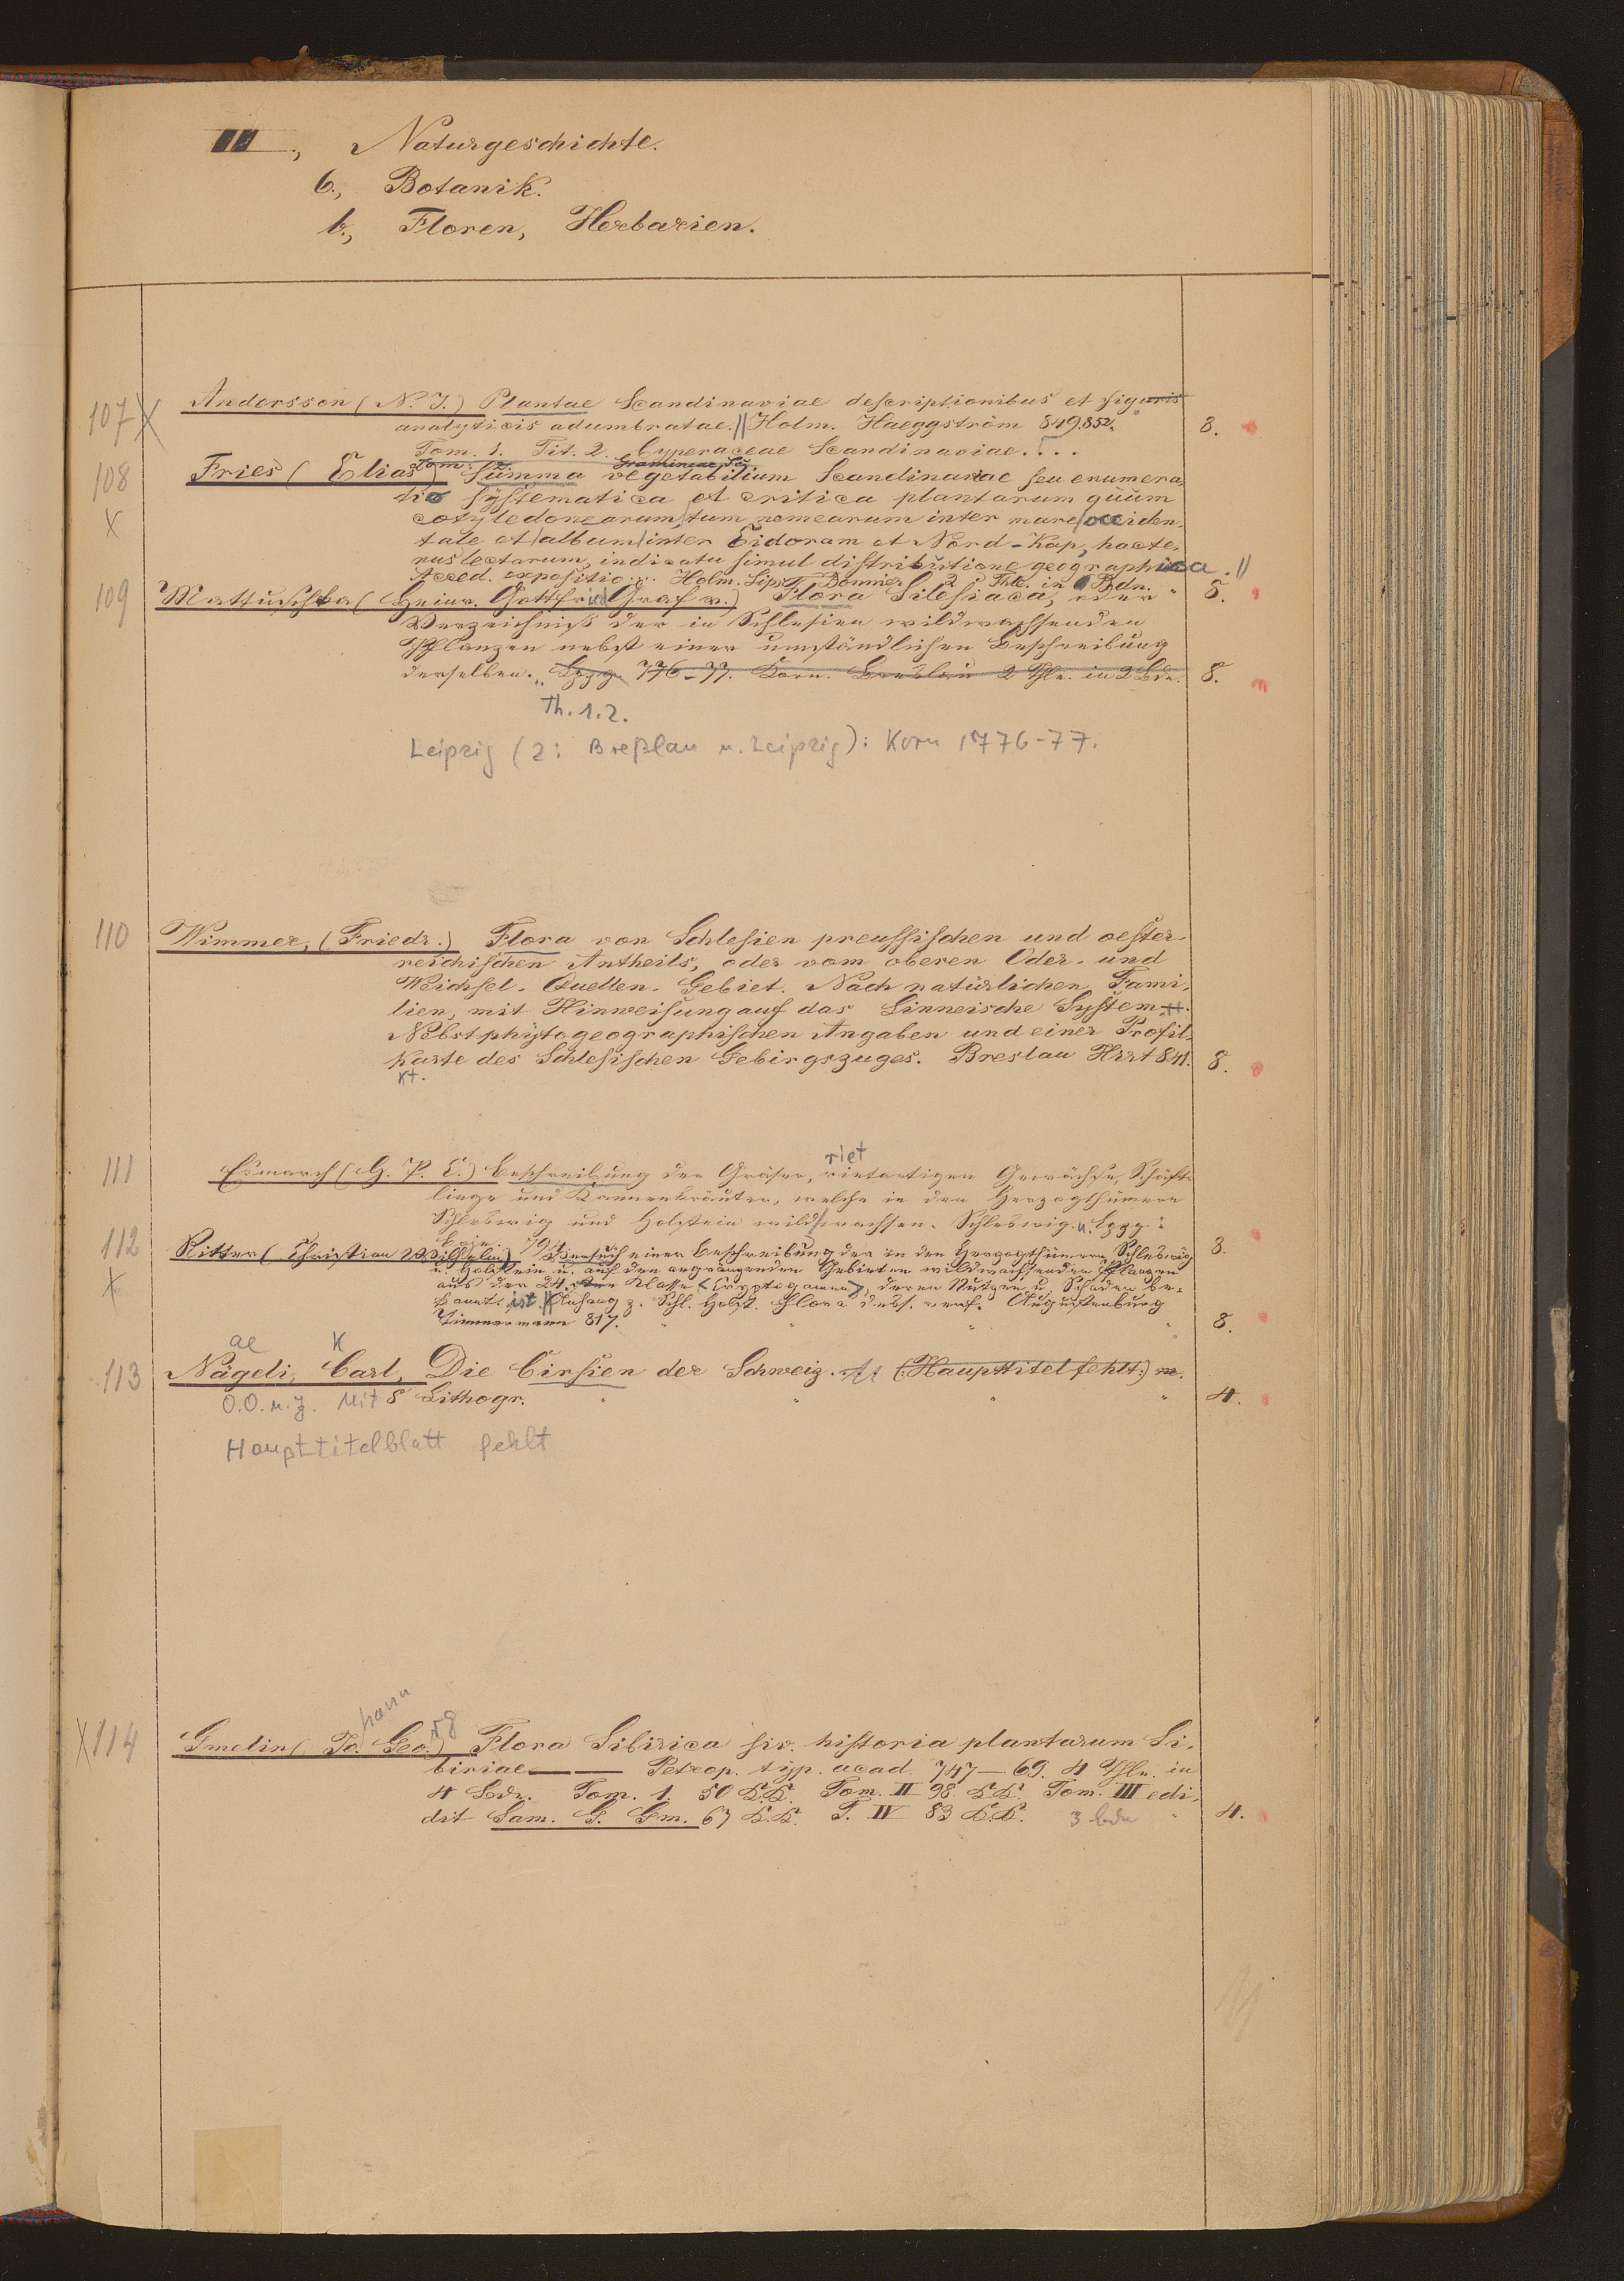 III., Naturgeschichte.
6., Botanik.
b., Floren, Herbarien.
107 X Andersson (N. J.) Plantae Scandinaviae descriptionibus et figuris
analyticis adumbratae. || Holm. Haeggström 849.852. 8.
Tom. 1. Tit. 2. Cyperaceae Scandinaviae....
Tom. 2. Gramineae Sc.
108 X Fries (Elias) Summa vegetabilium Scandinaviae seu enumera
tio systematica et critica plantarum quum
cotyledonearum, tum nemearum inter mare occiden,
tale et album inter Eidoram et Nord-Kap, hacte,
nus lectarum, indicatu simul distributione geographica. ||
Acced. expositio... Holm. Lips. Bonnier 2 Thle. in Bdn. " 8.
109 Mattuschka (Heinr. Gottfried Graf v.) Flora Silesiaca, oder
Verzeichniß der in Schlesien wildwachsenden
Pflanzen nebst einer umständlichen Beschreibung
derselben. Lpzg. 776-77. Korn. Breslau 2 Thle. in 2 Bdn. 8.
Th. 1.2.
Leipzig (2: Breßlau u. Leipzig): Korn 1776-77.
110 Wimmer, (Friedr.) Flora von Schlesien preussischen und oester-
reichischen Antheils, oder vom oberen Oder- und
Weichsel-Quellen-Gebiet. Nach natürlichen Fami,
lien, mit Hinweisung auf das Linneische System.
Nebst phytogeographischen Angaben und einer Profil-
karte des Schlesischen Gebirgszuges. Breslau Hirt 841. 8.
Kt.
riet
111 Esmarch (H. P. C.) Beschreibung der Gräser, rietartigen Gewächse, Schäft-
linge und Kannenkräuter, welche in den Herzogthümern
Schleswig und Holstein wild wachsen. Schleswig. u. Lpzg:
Boie. 794. 8.
112 X Ritter (Christian Wilhelm) Versuch einer Beschreibung der in den Herzogthümern Schleswig
u. Holstein u. auf den angränzenden Gebieten wildwachsenden Pflanzen
aus der 24. Klasse (Cryptogamen), deren Nutzen u. Schaden be-
kannt ist. || Anhang z. Schl. Holst. Flora dess. Verf. Augustenburg
Zimmermann 817. " " " " 8.
ae K
113 Nägeli, Carl, Die Cirsien der Schweiz. (:Haupttitel fehlt:) m.
O.O.u.J. Mit 8 Lithogr. " " " " 4.
Haupttitelblatt fehlt
hann rg
X 114 Gmelin (Jo. Geo.) Flora Sibirica siv. historia plantarum Si,
biriae —— Petrop. typ. acad. 747—69. 4 Thle. in
4 Bdn. Tom. 1. 50 K.K. Tom. II 98 K.K. Tom. III edi,
dit Sam. G. Gm. 67 K.K. T. IV 83 K.K. 3 Bde " 4.